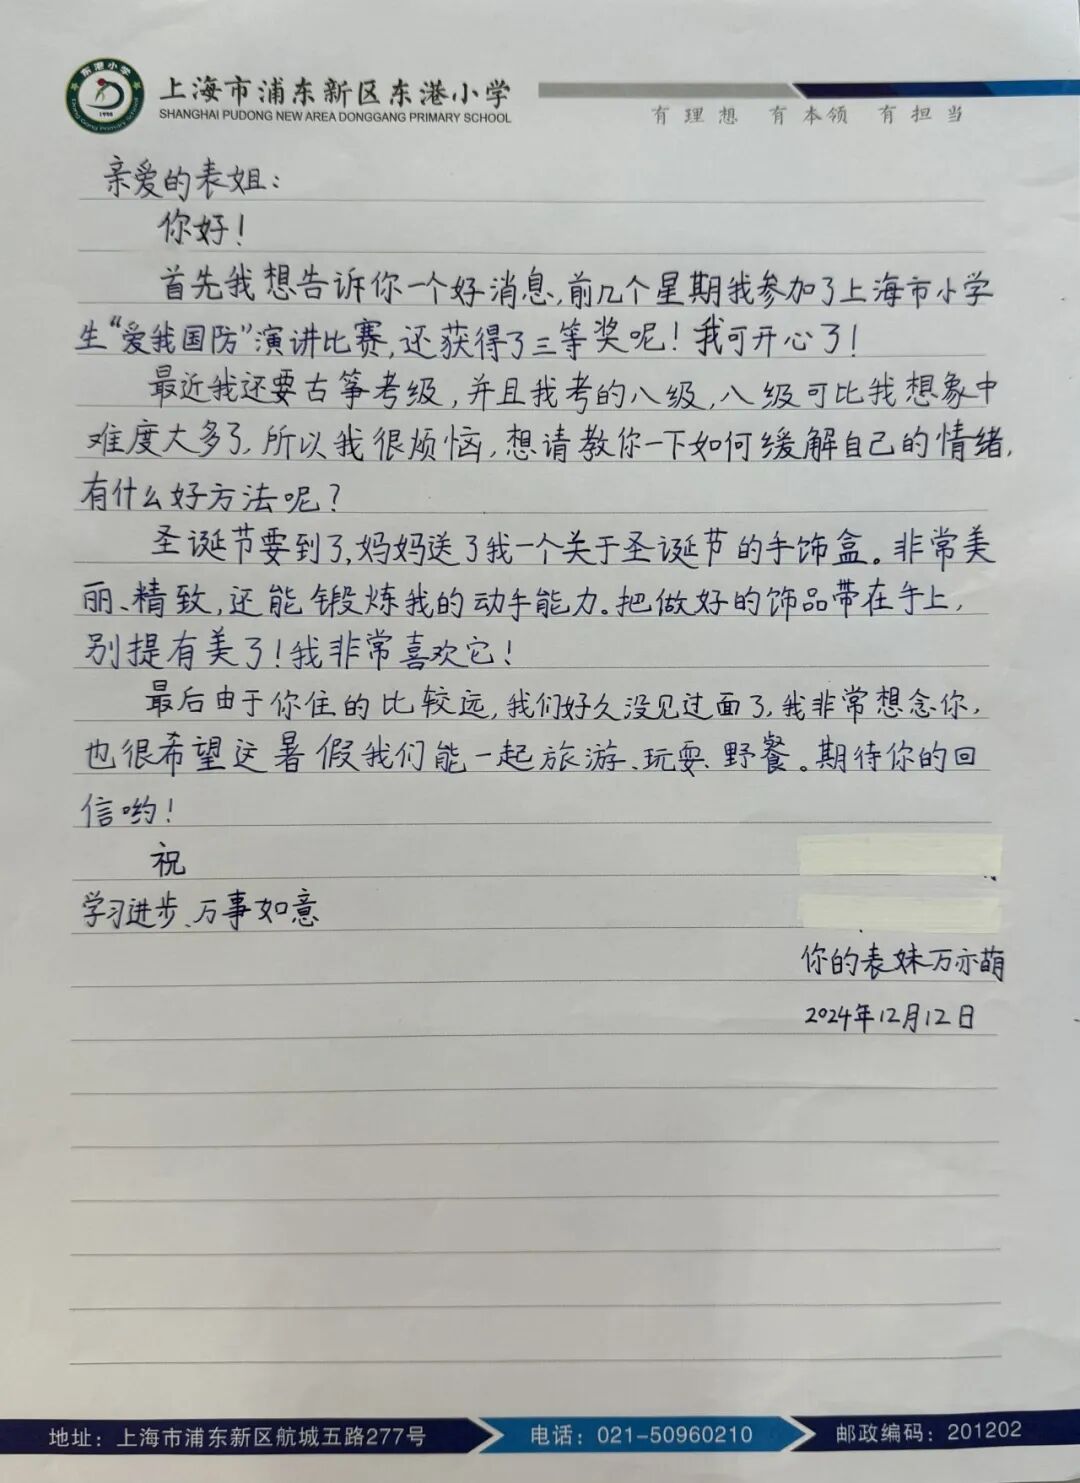 东港小学
Dong Gang Primary School
1998
上海市浦东新区东港小学
SHANGHAI PUDONG NEW AREA DONGGANG PRIMARY SCHOOL
有理想 有本领 有担当
亲爱的表姐：
你好！
首先我想告诉你一个好消息，前几个星期我参加了上海市小学
生“爱我国防”演讲比赛，还获得了三等奖呢！我可开心了！
最近我还要古筝考级，并且我考的八级，八级可比我想象中
难度大多了，所以我很烦恼，想请教你一下如何缓解自己的情绪，
有什么好方法呢？
圣诞节要到了，妈妈送了我一个关于圣诞节的手饰盒。非常美
丽、精致，还能锻炼我的动手能力。把做好的饰品带在手上，
别提有美了！我非常喜欢它！
最后由于你住的比较远，我们好久没见过面了，我非常想念你，
也很希望这暑假我们能一起旅游、玩耍、野餐。期待你的回
信哟！
祝
学习进步、万事如意
你的表妹万亦萌
2024年12月12日
地址：上海市浦东新区航城五路277号
电话：021-50960210
邮政编码：201202